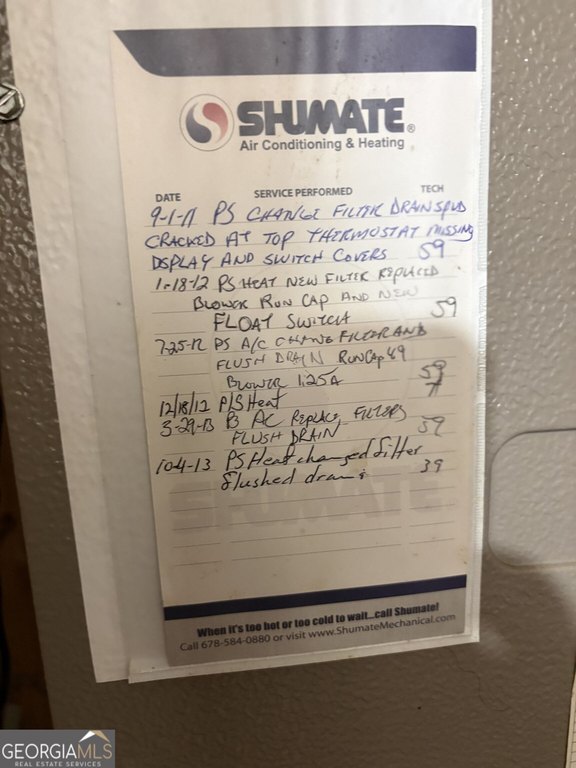 SHUMATE®
Air Conditioning & Heating
DATE SERVICE PERFORMED TECH
9-1-11 PS CHANGE FILTER DRAIN SPUD
CRACKED AT TOP THERMOSTAT MISSING
DSPLAY AND SWITCH COVERS 59
1-18-12 PS HEAT NEW FILTER REPLACED
BLOWER RUN CAP AND NEW
FLOAT SWITCH 59
7-25-12 PS A/C CHANGE FILTER AND
FLUSH DRAIN RUN CAP 49
BLOWER 1.25A 59
12/18/12 P/S Heat 71
3-29-13 PS AC REPLACE FILTERS
FLUSH DRAIN 59
10-4-13 PS Heat changed filter
flushed drain 39
When it's too hot or too cold to wait...call Shumate!
Call 678-584-0880 or visit www.ShumateMechanical.com
GEORGIAMLS
REAL ESTATE SERVICES